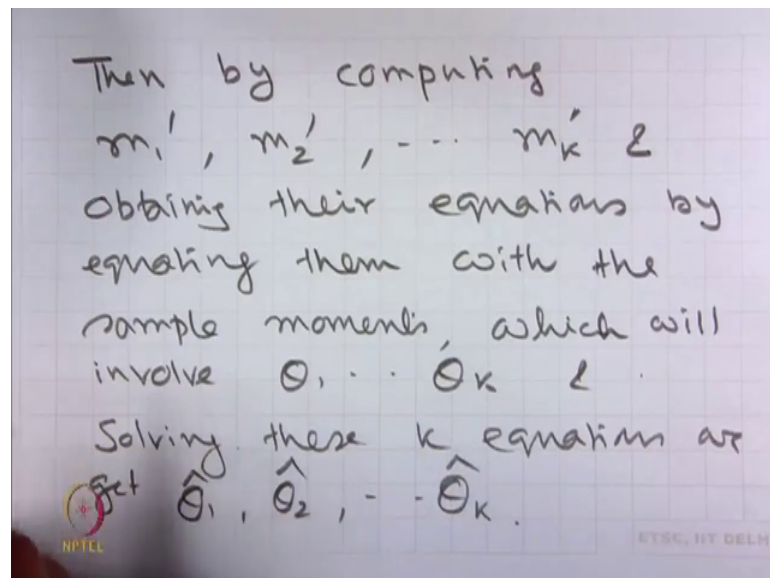 Then by computing
m₁', m₂', --- mₖ' &
obtaining their equations by
equating them with the
sample moments, which will
involve θ₁ .. θₖ &
Solving these k equations we
get θ̂₁, θ̂₂, - - θ̂ₖ.
NPTEL
ETSC, IIT DELH